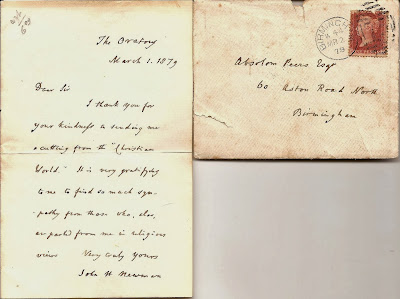 The Oratory
March 1. 1879
Dear Sir
I thank you for
your kindness in sending me
a cutting from the "Christian
World." It is very gratifying
to me to find so much sym-
pathy from those who, alas,
are parted from me in religious
views Very truly yours
John H Newman
BIRMINGHAM
MR 2
79
Absolom Peers Esqr
60 Aston Road North
Birmingham